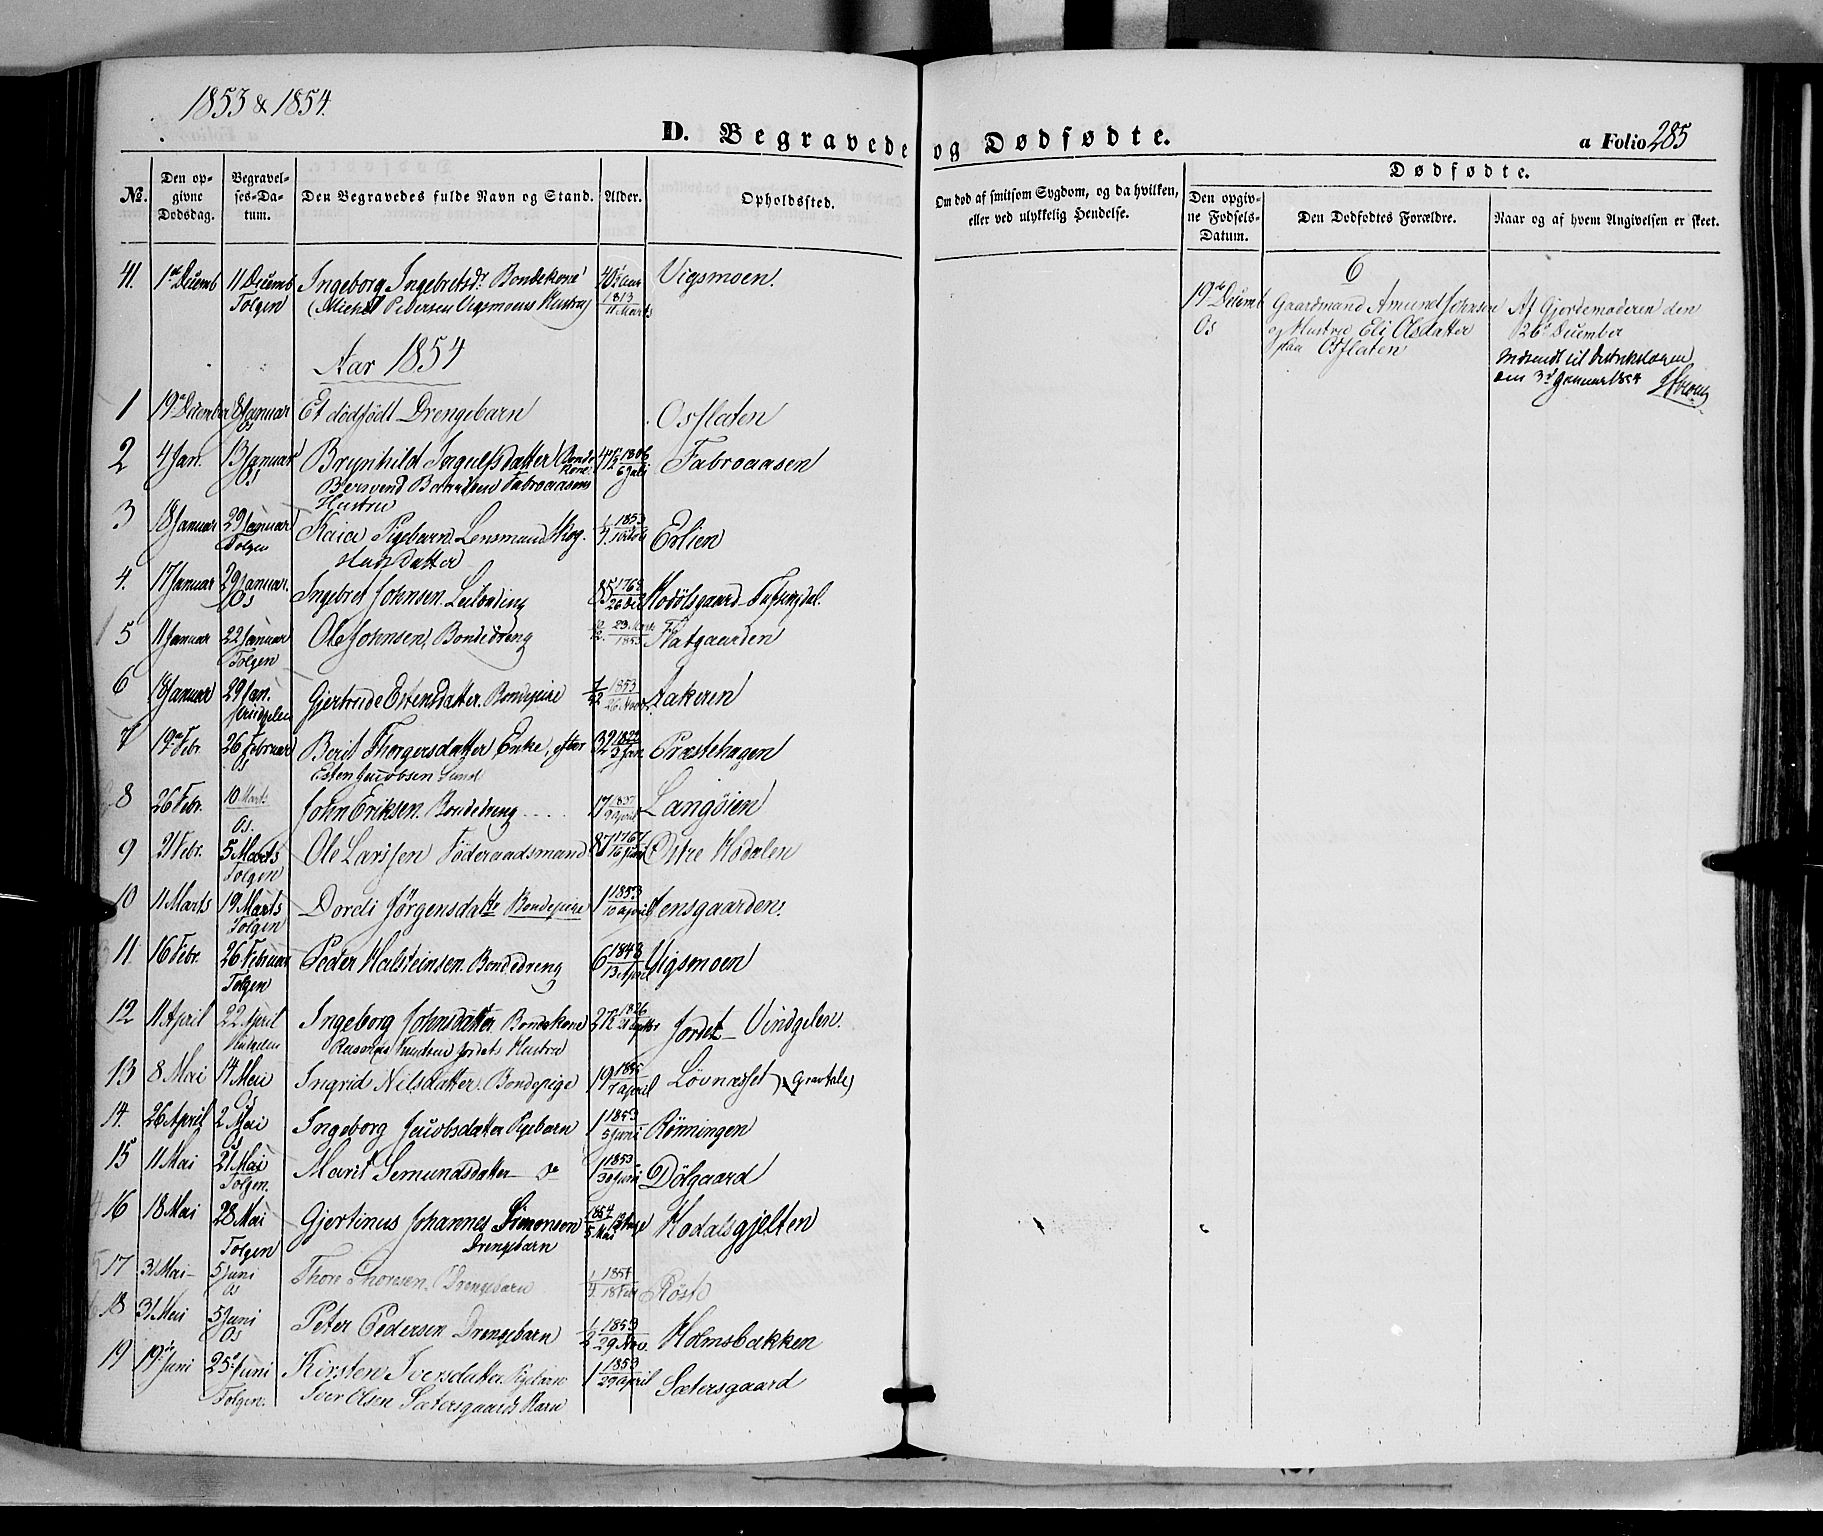 1853 & 1854.
D. Begravede og Dødfødte.
a Folio 285
No.
Den opgivne Dødsdag.
Begravelses-Datum.
Den Begravedes fulde Navn og Stand.
Alder.
Opholdssted.
Om død af smitsom Sygdom, og da hvilken, eller ved ulykkelig Hendelse.
Dødfødte.
Den opgivne Fødsels-Datum.
Den Dødfødtes Forældre.
Naar og af hvem Angivelsen er skeet.
41. 1ste Decemb 11 Decemb Ingeborg Ingebretsdr Bondekone Vigsmoen.
Tolgen Pedersen Vigsmoens Hustru 1813 11 Marts
6
19de Decemb Gaardmand Amund Johnsen Af Gjordemoderen den
Os og Hustru Eli Olsdatter 26 December
paa Osflaten Indsendt til
den 3d Januar 1854
Aar 1854
1 19 December 8 Januar Et dødfødt Drengebarn Osflaten
Os
2 4 Jan. 13 Januar Brynhild Ingulfsdatter Bonde Kone 47 1806 6 Juli Fabroaasen
Os Fabroaasens
Hustru
3 18 Januar 29 Januar Kaia Pigebarn. Lensmand Skog- 1853 Erlien
Tolgen stads Datter
4. 17 Januar 29 Januar. Ingebret Johnsen. 85 26 Dec Hodølsgaard - Tufsingdal.
Os
5 11 Januar 22 Januar Ole Johnsen, Bondedreng 23 Marts 1853 Flatgaarden
Tolgen
6 18 Januar 29 Jan. Gjertrude Estensdatter. Bondepige 1853 26 Nov. Aakeren
Vindgelen
7 19 Febr 26 Februar Berit Thorgersdatter Enke, efter 32 3 Jan Præstehagen
Os Esten Jacobsen Sund
8 26 Febr. 10 Marts John Eriksen. Bondedreng 17 9 April Langøien
Os.
9 21 Febr. 5 Marts Ole Larssen Føderaadsmand 87 1767 16 Østre Hodalen
Tolgen
10 11 Marts 19 Marts Dordi Jørgensdatte Bondepige 1 1853 10 April Jensgaarden.
Tolgen
11. 16 Febr. 26 Februar Peder Halsteinsen. Bondedreng 6 1848 13 April Vigsmoen
Tolgen
12 11 April 22 April Ingeborg Johnsdatter. Bondekone 27 1826 21 Jordet - Vindgelen.
Vindgelen Knudsen Jordets Hustru
13 8 Mai 14 Mai Ingrid Nilsdatter. Bondepige 19 7 April Løvnæsset
Os
14. 26 April 2 Mai Ingeborg Jacobsdatter Pigebarn 1 1853 5 Juni Rønningen
Os
15 11 Mai 21 Mai Marit Semundsdatter - do 1 1853 30 Juni Dølgaard
Tolgen.
16 18 Mai 28 Mai Gjertinus Johannes Simensen 1854 5 Mai Hodalsgjelten
Tolgen Drengebarn
17 31 Mai 5 Juni Thore Thoresen. Drengebarn 1854 18 Feb Røste
Os
18 31 Mai 5 Juni Peter Pedersen Drengebarn 1/2 1853 29 Nov. Holmsbakken
Os
19 19de Juni 25de Juni Kirsten Iversdatter Pigebarn 1 1853 29 April Sætersgaard
Tolgen. Iver Olsen Sætersgaards Barn